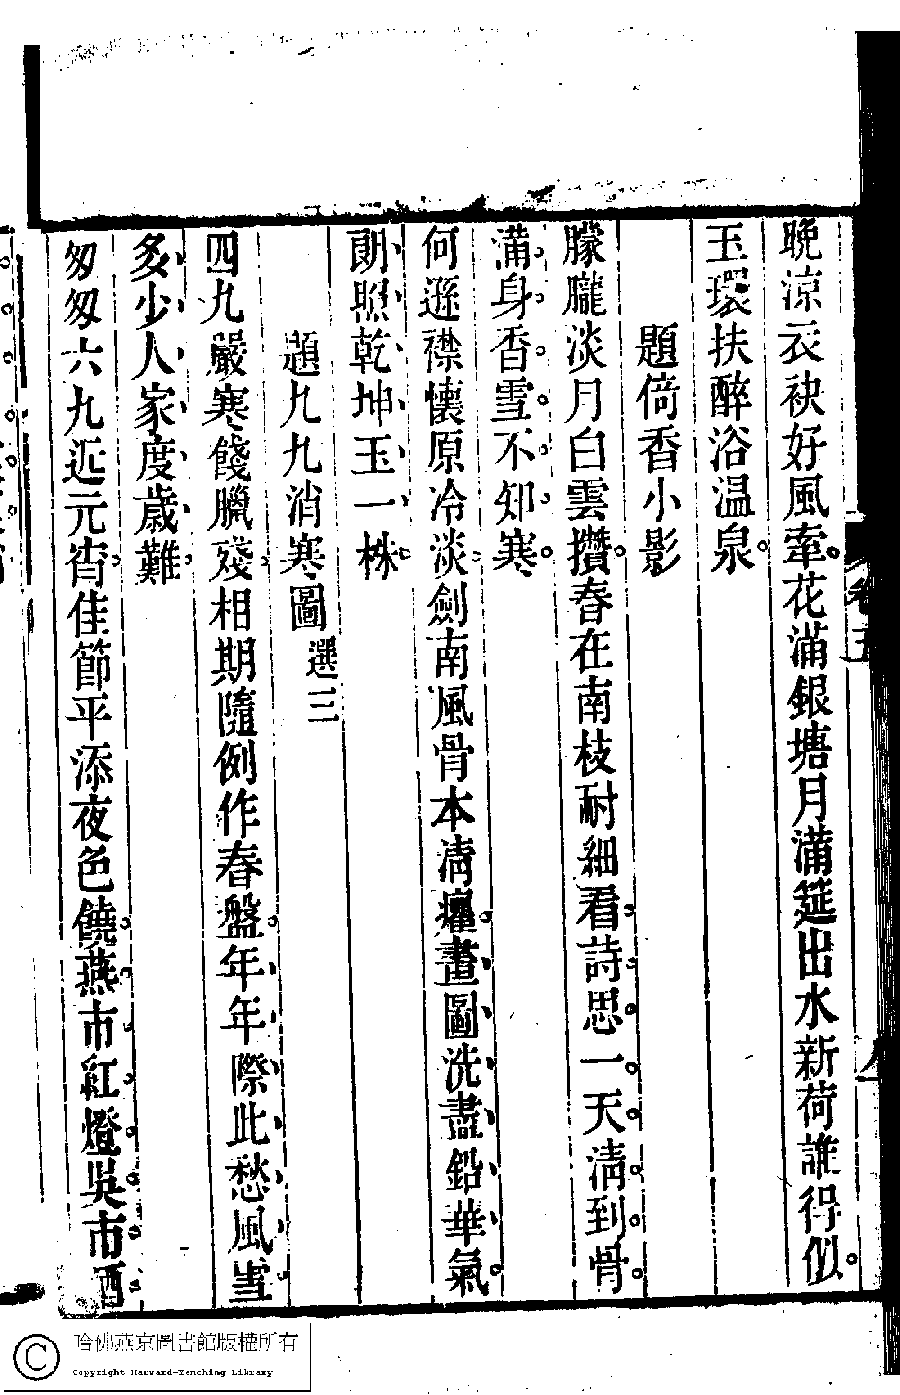 晚涼衣袂好風牽花滿銀塘月滿筵出水新荷誰得似
玉環扶醉浴温泉
題倚香小影
朦朧淡月白雲攢春在南枝耐細看詩思一天清到骨
滿身香雪不知寒
何遜襟懷原冷淡劍南風骨本清癯畫圖洗盡鉛華氣
朗照乾坤玉一株
題九九消寒圖選三
四九嚴寒餞臘殘相期隨例作春盤年年際此愁風雪
多少人家度歲難
匆匆六九近元宵佳節平添夜色饒燕市紅燈吳市酒
卷五
哈佛燕京圖書館版權所有
Copyright Harvard-Yenching Library